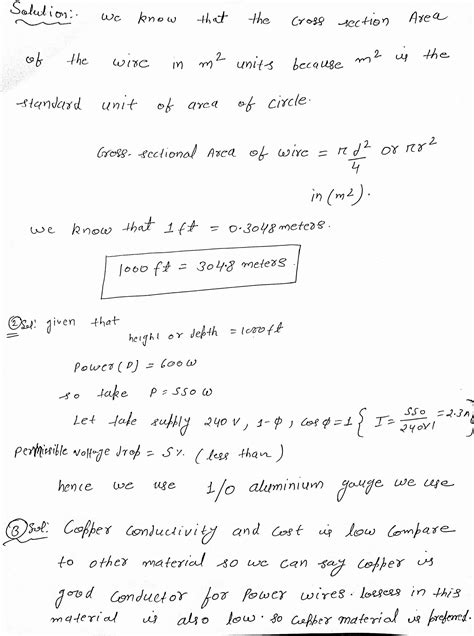 Solution:- We know that the Cross section Area
of the wire in m² units because m² is the
standard unit of area of circle.
Cross-sectional Area of wire = πd²/4 or πr²
in (m²).
we know that 1ft = 0.3048 meters.
1000 ft = 304.8 meters
② Sol: given that
height or depth = 1000ft
Power (P) = 600w
so take P = 550 w
Let take supply 240 V, 1-ϕ, cosϕ = 1 { I = 550/240×1 = 2.3A }
permissible voltage drop = 5% (less than)
hence we use 1/0 aluminium gauge we use
③ Sol: Copper conductivity and cost is low compare
to other material so we can say copper is
good conductor for power wires. losses in this
material is also low. so copper material is preferred.